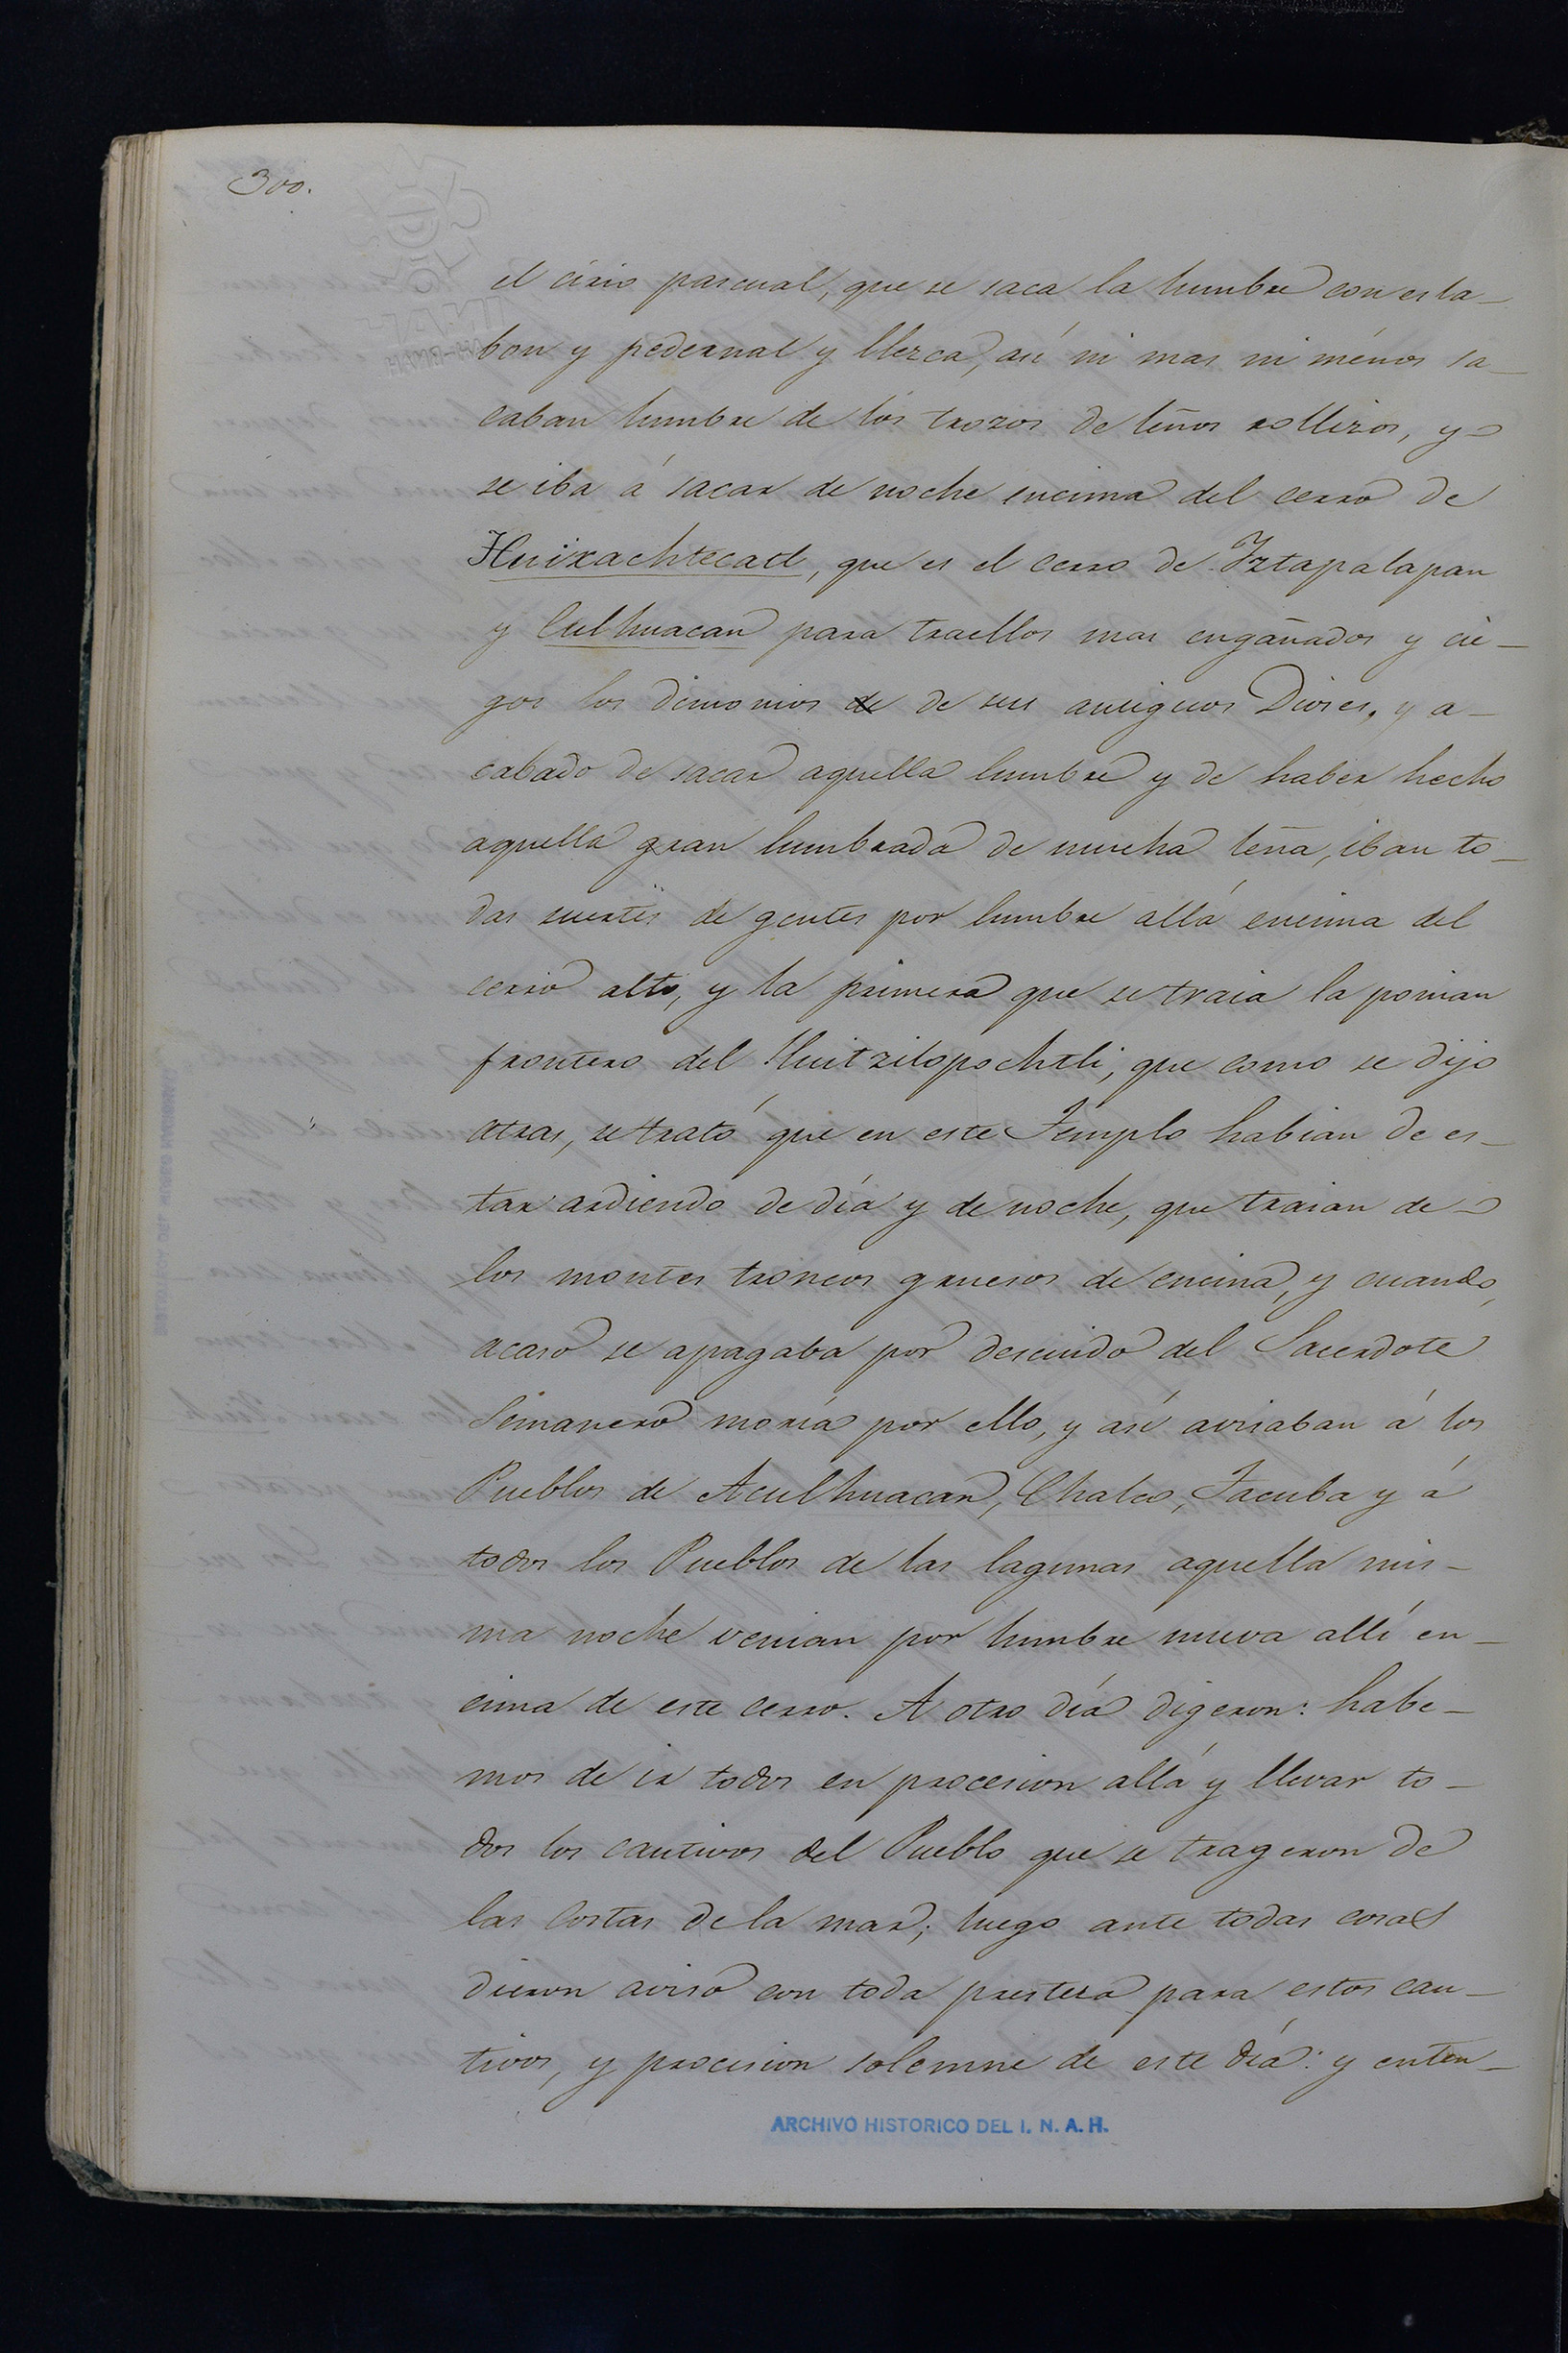 300.
el cirio pascual, que se saca la lumbre con esla-
bon y pedernal y llezca, así ni mas ni ménos sa-
caban lumbre de los trozos de leños rollizos, y
se iba á sacar de noche encima del cerro de
Huixachtecatl, que es el cerro de Iztapalapan
y Culhuacan para traellos mas engañados y cie-
gos los demonios de de sus antiguos Dioses, y a-
cabado de sacar aquella lumbre y de haber hecho
aquella gran lumbrada de mucha leña, iban to-
das suertes de gentes por lumbre allá encima del
cerro alto, y la primera que se traia la ponian
frontero del Huitzilopochtli, que como se dijo
atras, se trató que en este Templo habian de es-
tar ardiendo de día y de noche, que traian de
los montes troncos gruesos de encina, y cuando
acaso se apagaba por descuido del Sacerdote
Semanero moría por ello, y así avisaban á los
Pueblos de Aculhuacan, Chalco, Tacuba y á
todos los Pueblos de las lagunas aquella mis-
ma noche venian por lumbre nueva allí en-
cima de este cerro. A otro día digeron: habe-
mos de ir todos en procesion allá y llevar to-
dos los cautivos del Pueblo que se trageron de
las Costas de la mar; luego ante todas cosas
dieron aviso con toda presteza para estos cau-
tivos, y procesion solemne de este día: y enten-
ARCHIVO HISTORICO DEL I. N. A. H.